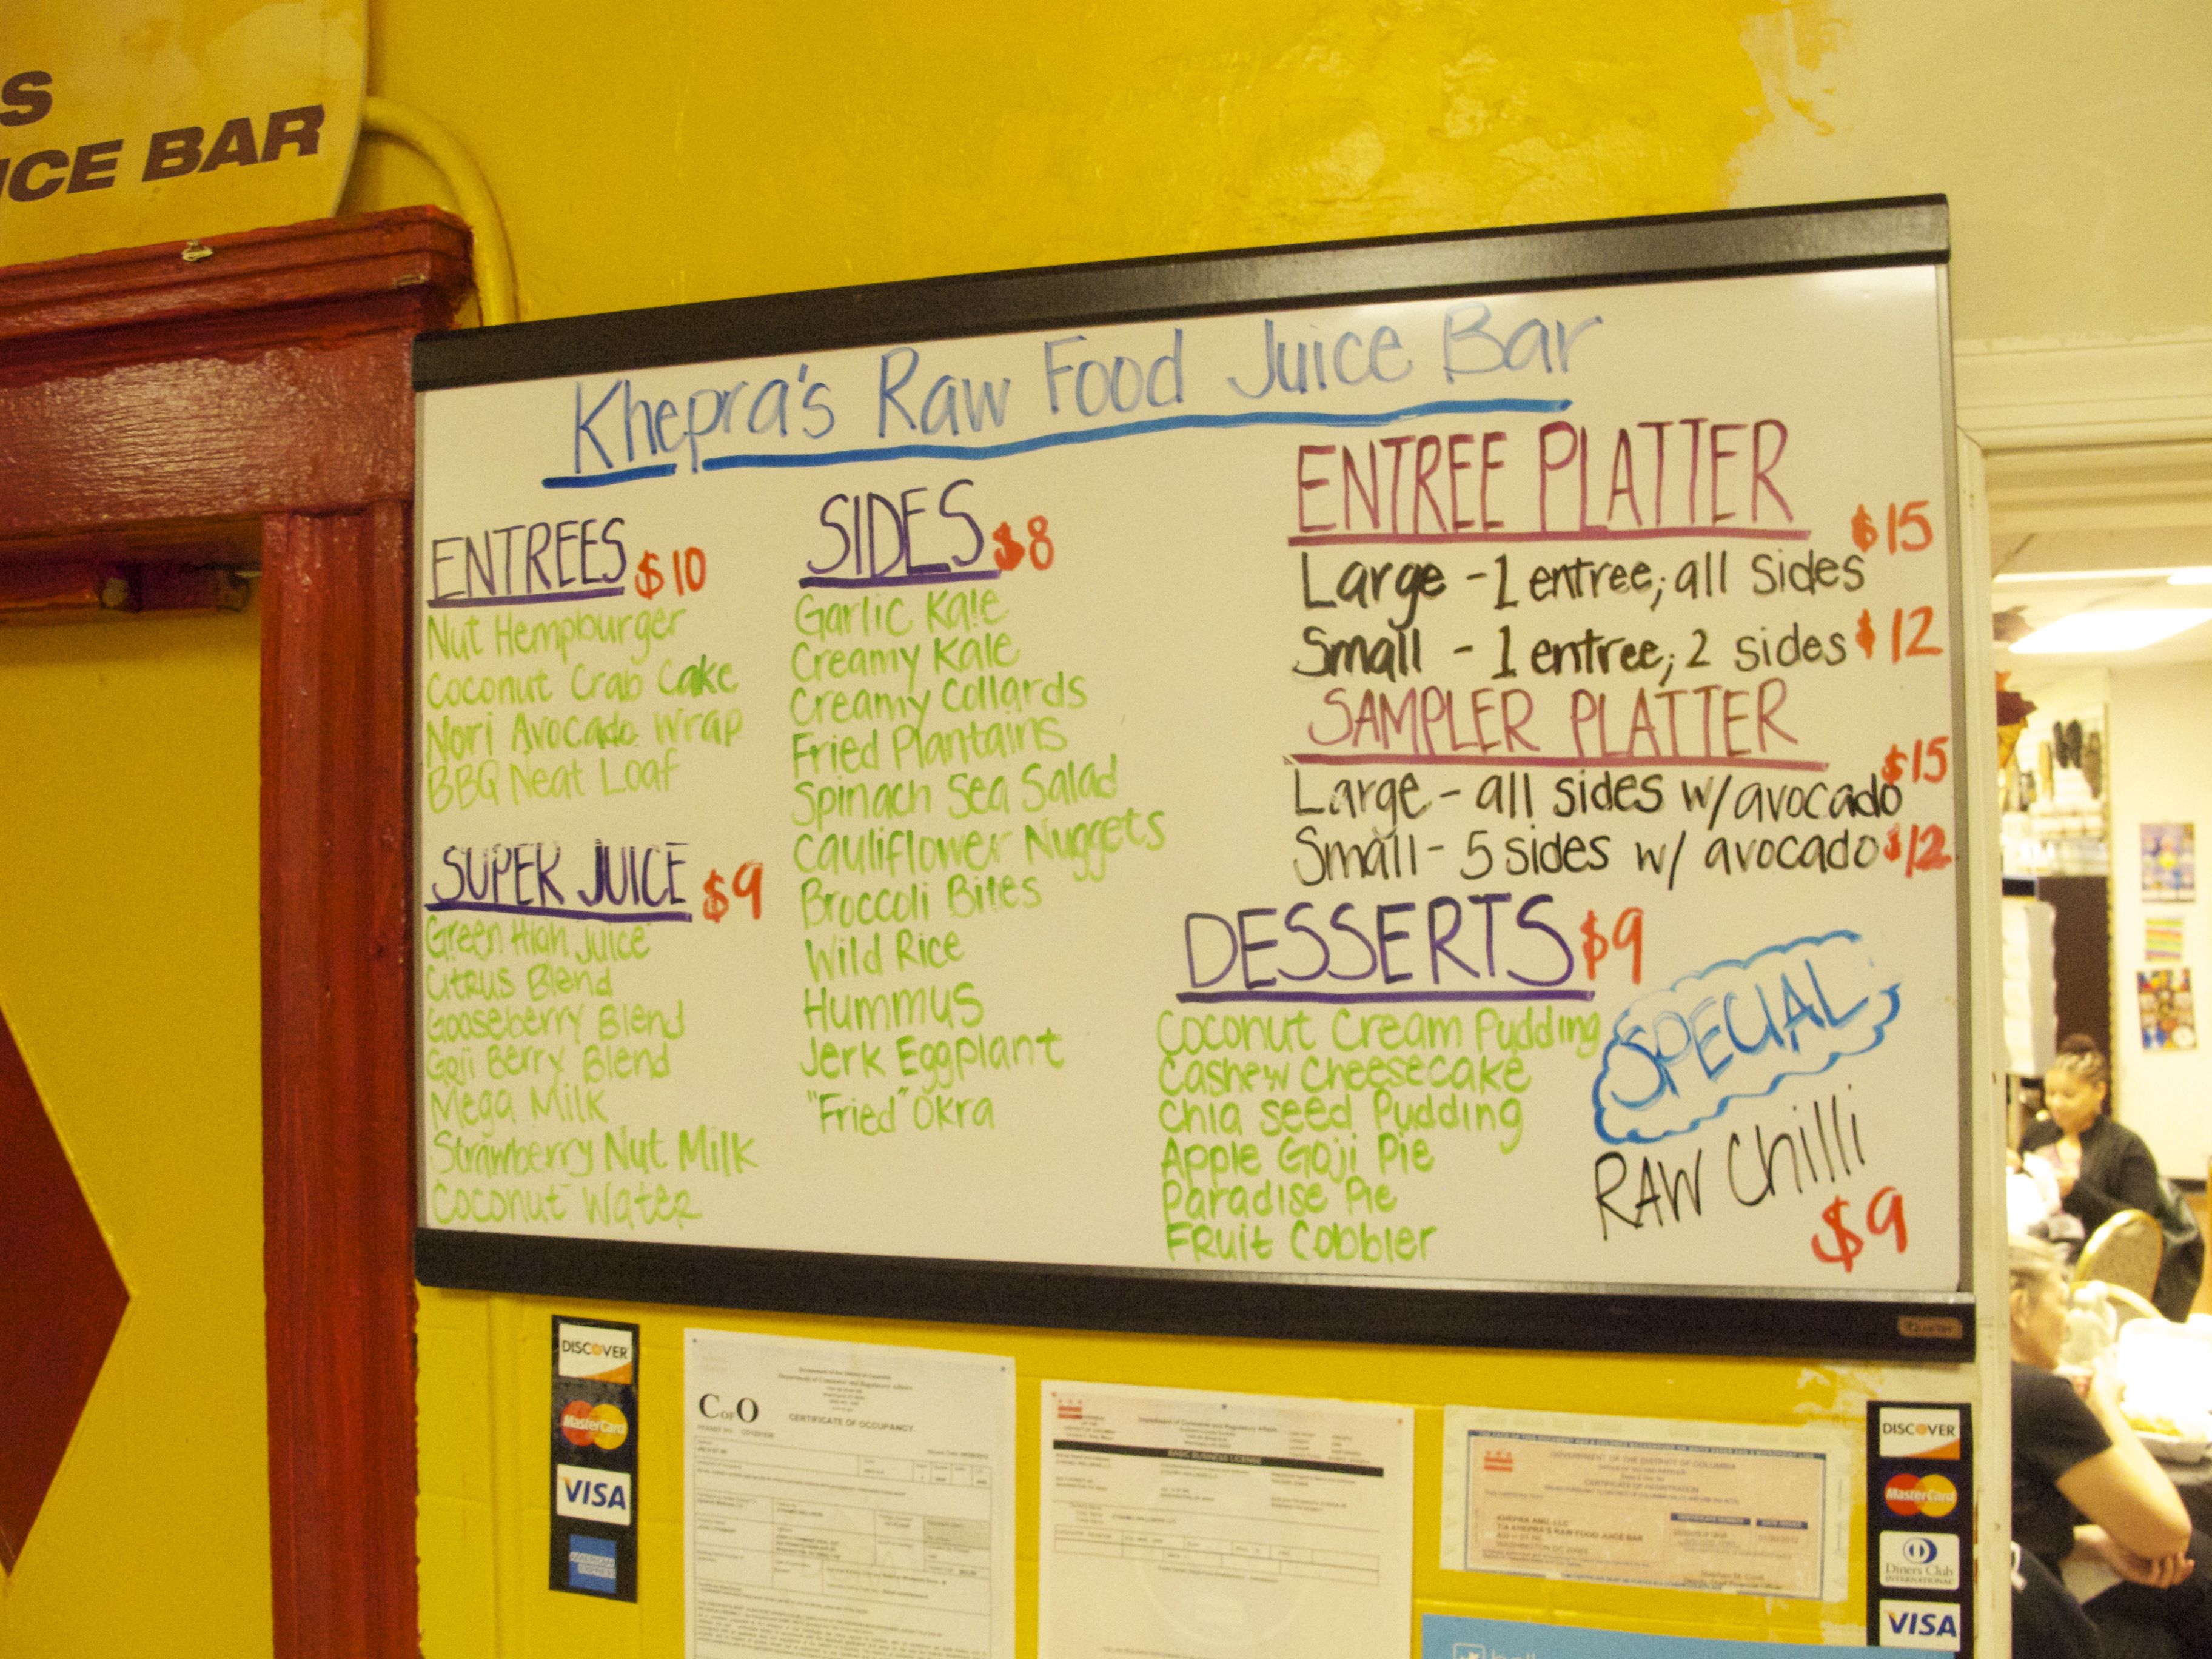 S
ICE BAR
Khepra's Raw Food Juice Bar
ENTREES $10
Nut Hempburger
Coconut Crab Cake
Nori Avocado Wrap
BBQ Neat Loaf
SUPER JUICE $9
Green High Juice
Citrus Blend
Gooseberry Blend
Goji Berry Blend
Mega Milk
Strawberry Nut Milk
Coconut Water
SIDES $8
Garlic Kale
Creamy Kale
Creamy Collards
Fried Plantains
Spinach Sea Salad
Cauliflower Nuggets
Broccoli Bites
Wild Rice
Hummus
Jerk Eggplant
"Fried" Okra
ENTREE PLATTER
Large - 1 entree; all sides $15
Small - 1 entree; 2 sides $12
SAMPLER PLATTER
Large - all sides w/ avocado $15
Small - 5 sides w/ avocado $12
DESSERTS $9
Coconut Cream Pudding
Cashew Cheesecake
Chia seed Pudding
Apple Goji Pie
Paradise Pie
Fruit Cobbler
SPECIAL
RAW Chilli
$9
DISCOVER
MasterCard
VISA
AMERICAN EXPRESS
C OF O
CERTIFICATE OF OCCUPANCY
Department of Consumer and Regulatory Affairs
BASIC BUSINESS LICENSE
GOVERNMENT OF THE DISTRICT OF COLUMBIA
CERTIFICATE OF REGISTRATION
KHEPRA ANU, LLC
T/A KHEPRA'S RAW FOOD JUICE BAR
WASHINGTON DC
DISCOVER
MasterCard
Diners Club
INTERNATIONAL
VISA